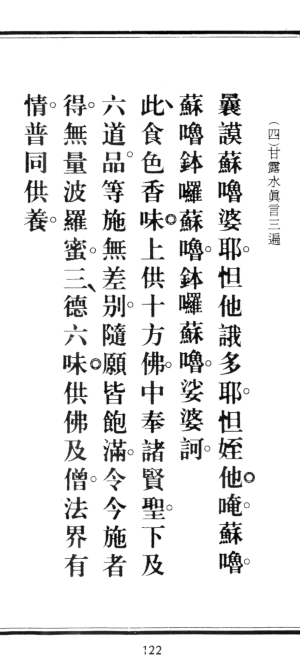 (四)甘露水眞言三遍
曩謨蘇嚕婆耶。怛他誐多耶。怛姪他◎唵。蘇嚕。
蘇嚕鉢囉蘇嚕。鉢囉蘇嚕。娑婆訶。
此、食色香味◎上供十方佛。中奉諸賢聖。下及
六道品。等施無差别。隨願皆飽滿。令今施者
得。無量波羅蜜。三、德六味◎供佛及僧。法界有
情。普同供養。
122